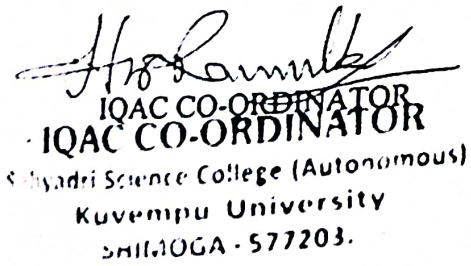 IQAC CO-ORDINATOR
IQAC CO-ORDINATOR
Sahyadri Science College (Autonomous)
Kuvempu University
SHIMOGA - 577203.